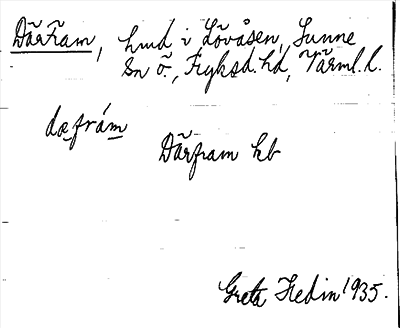 Därfram, hmd i Lövåsen, Sunne
sn ö., Fryksd. hd, Värml. l.
dæfrám
Därfram kb
Greta Hedin 1935.